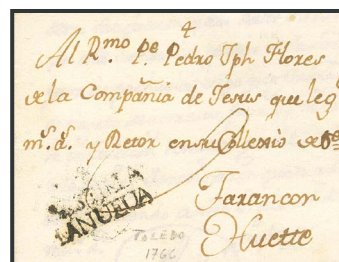 4
Al R.mo P.e Pedro Jph Flores
de la Compañia de Jesus que leg
m.s d.s y Retor en su Collexio de
Tarancon
Huette
LANUEUA
TOLEDO
1766